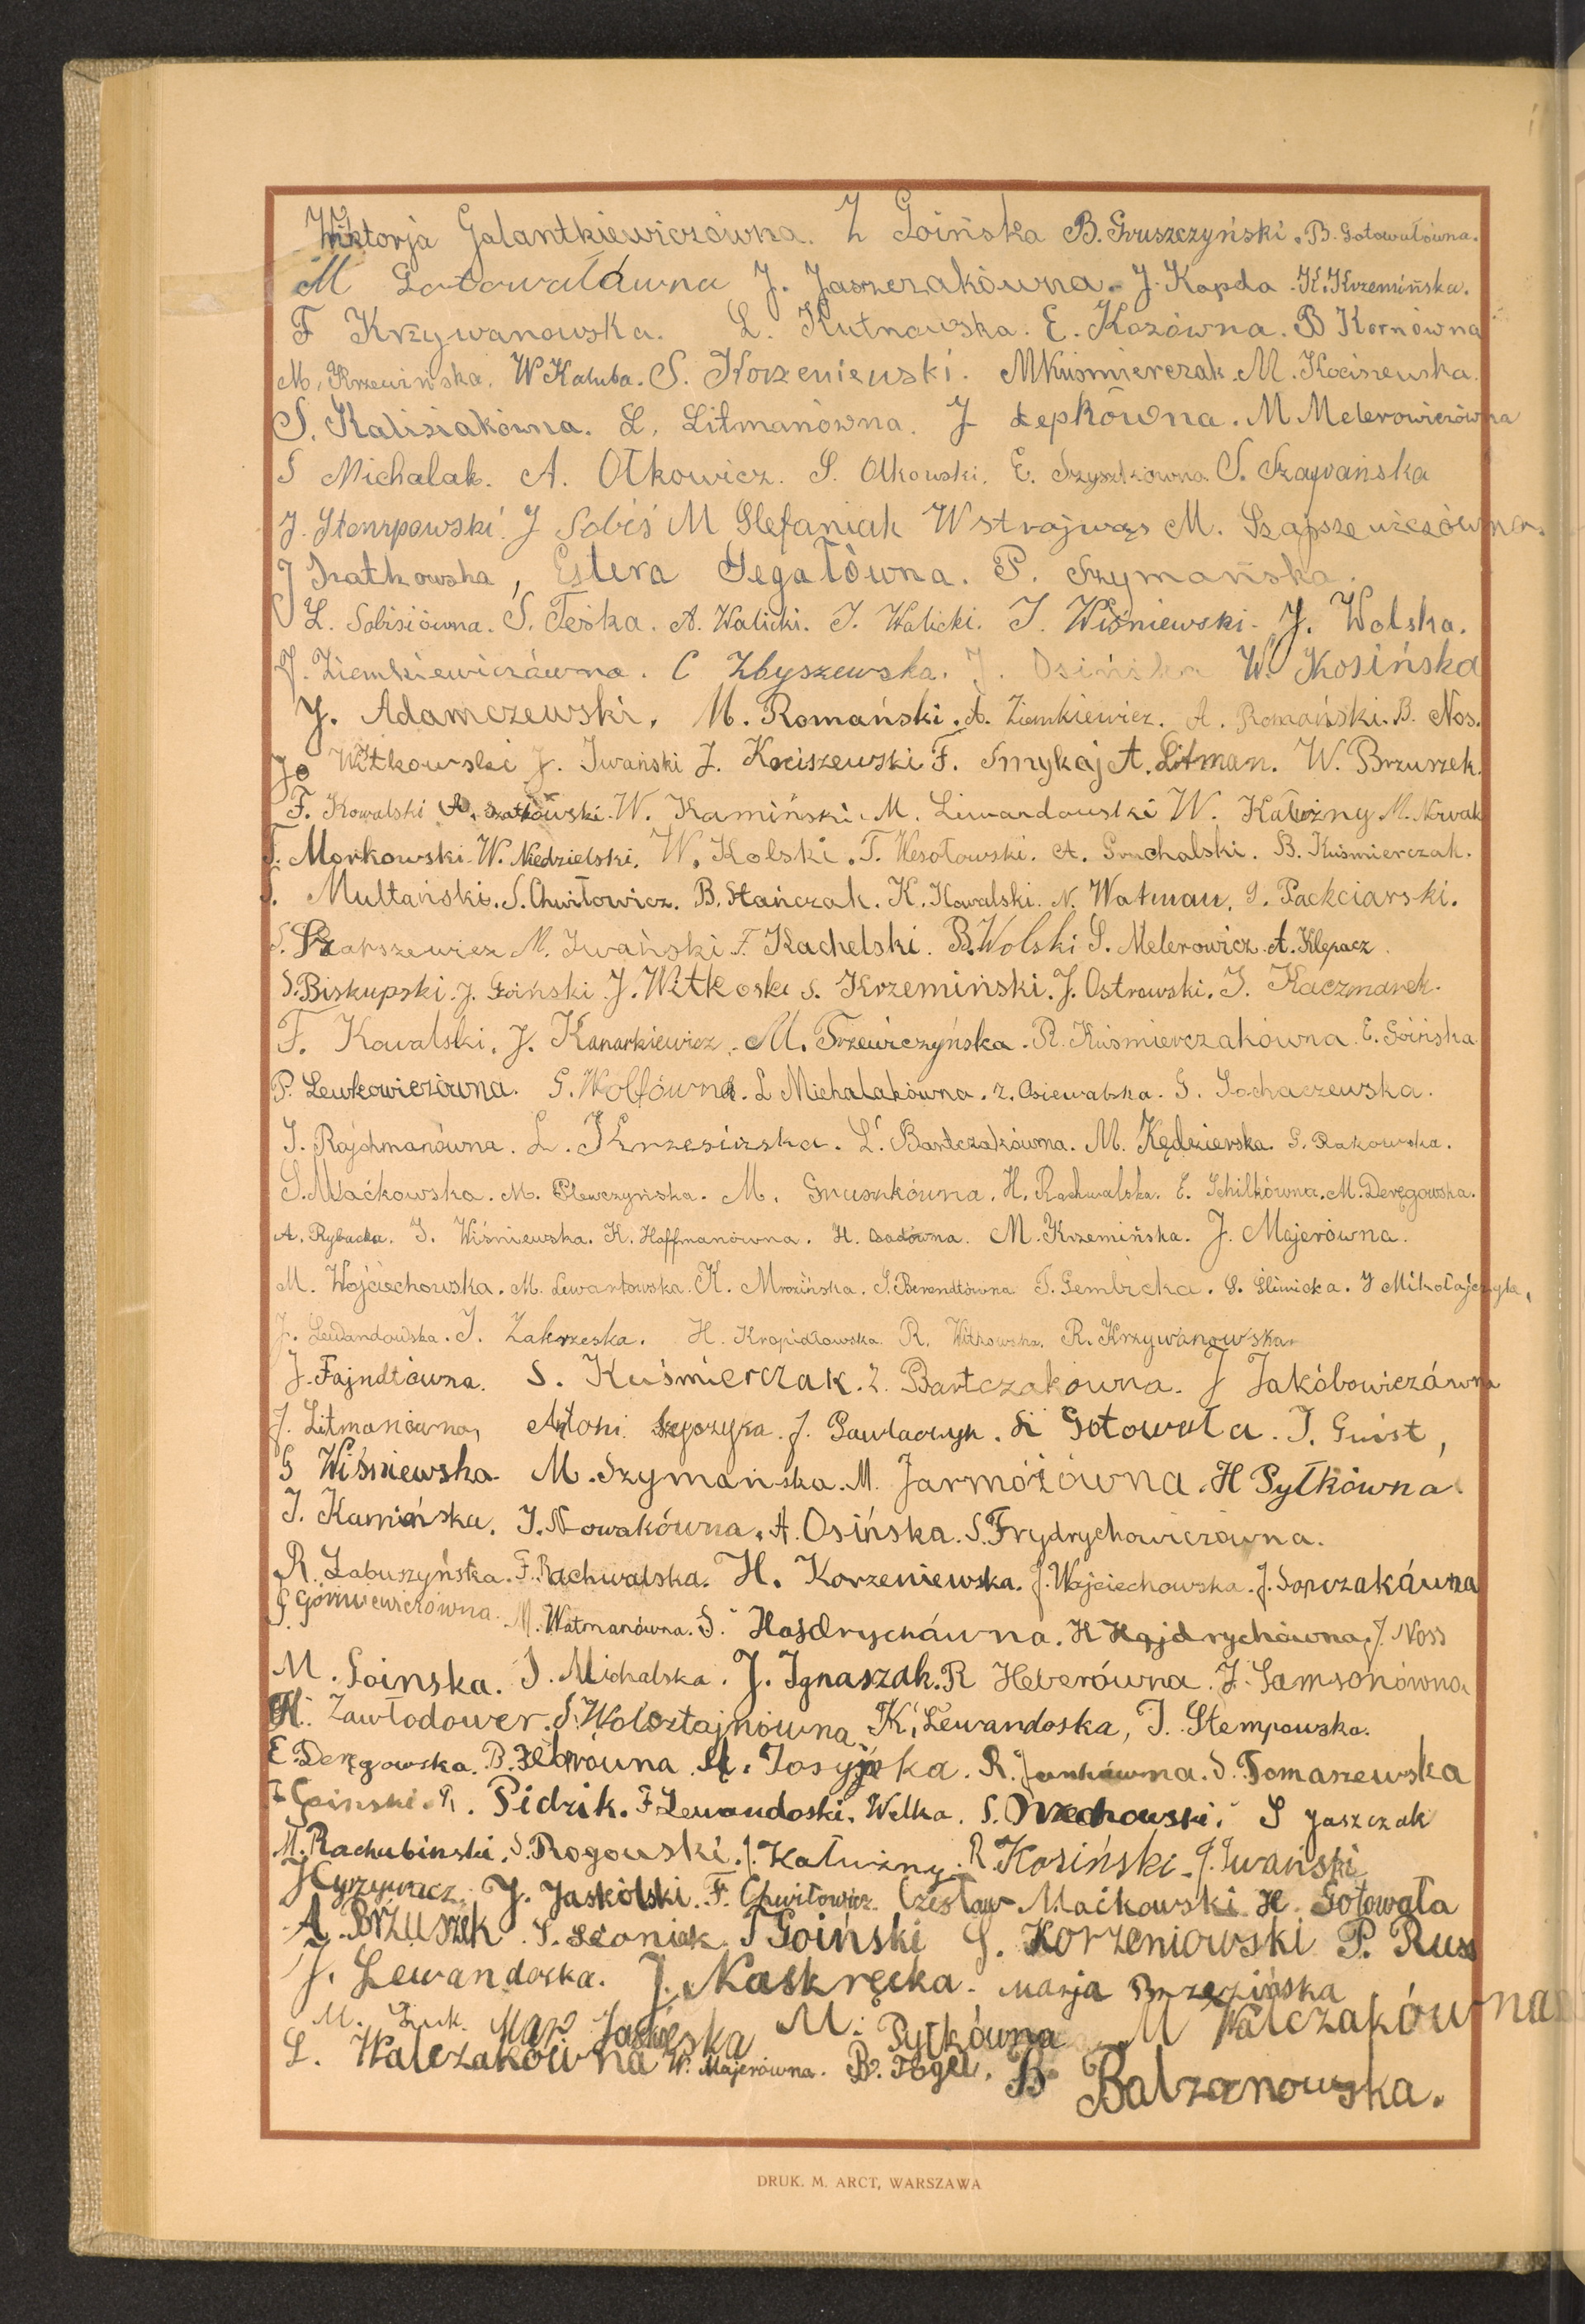 Wiktorja Galantkiewiczówna. Z Goińska B. Gruszczyński. B. Gotowałówna.
M Gotowałówna J. Jaszczakówna. J. Kapda K. Krzemińska.
F Krzywanowska. L. Kutnowska. E. Kozówna. B Kornówna
M. Krzewińska. W Kałuba. S. Korzeniewski. M Kuśmierczak. M. Kociszewska.
S. Kalisiakówna. L. Litmanówna. J Łepkówna. M Melerowiczówna
S Michalak. A. Olkowicz. S. Olkowski. E. Szyszkówna S. Szajwańska
J. Stempowski. J Sobiś M Stefaniak W Strojwąs M. Szajszewiczówna.
J Szatkowska, Estera Segałówna. P. Szymańska.
L. Sobisiówna. S. Teska. A. Walicki. J. Walicki. J. Wiśniewski. J. Wolska.
J. Ziemkiewiczówna. C Zbyszewska. J. Osińska W. Kosińska
J. Adamczewski. M. Romański. A. Ziemkiewicz. A. Romański. B. Nos.
J. Witkowski J. Iwański J. Kociszewski F. Smykaj A. Litman. W. Brzuszek.
F. Kowalski A. Szatkowski. W. Kamiński. M. Liwandowski W. Kałużny M. Nowak
F. Morkowski. W. Niedzielski. W. Kolski. T. Wesołowski. A. Gruchalski. B. Kuśmierczak.
S. Multański. S. Chwiłowicz. B. Stańczak. K. Kowalski. N. Watman. S. Packciarski.
S. Szarszewicz M. Iwański F. Kachelski. B. Wolski S. Melerowicz. A. Klepacz.
S. Biskupski. J. Goiński. J. Witkoski S. Krzemiński. J. Ostrowski. J. Kaczmarek.
F. Kowalski. J. Kanarkiewicz. M. Trzewiczyńska. R. Kuśmierczakówna. E. Goińska.
P. Lewkowiczówna. G. Wolfówna. L Michalakówna. Z. Osiewalska. G. Sochaczewska.
J. Rajchmanówna. L. Krzesińska. L. Bartczakówna. M. Kędzierska. G. Rakowska.
S. Maćkowska. M. Plewczyńska. M. Gruszkówna. H. Rachwalska. E. Schilkówna. M. Deręgowska.
A. Rybacka. J. Wiśniewska. K. Hoffmanówna. H. Osadówna. M. Krzemińska. J. Majerówna.
M. Wojciechowska. M. Lewantowska. K. Mrozińska. S. Berendtówna T. Gembicka. G. Śliwicka. J Mikołajczyka.
J. Lewandowska. J. Zakrzeska. H. Kropidłowska R. Witkowska. R. Krzywanowska
J. Fajndtówna. S. Kuśmierczak. Z. Bartczakówna. J Jakóbowiczówna
J. Litmanówna, Antoni J. Pawlaczyk. Gotowała. J. Guist,
G Wiśniewska. M. Szymańska. M. Jarmóżówna. H Pyłkówna.
J. Kamińska. J. Nowakówna. A. Osińska. S. Frydrychowiczówna.
R. Łabuszyńska. F. Rachwalska. H. Korzeniewska. J. Wojciechowska. J. Sopczakówna
S. Górniewiczówna. M. Watmanówna. S. Hajdrychówna. H Hajdrychówna. J. Noss
M. Goinska. J. Michalska. J. Ignaszak. R Heberówna. F. Samsonówna
H. Zawłodower. S. Wolsztajnówna K. Lewandoska, J. Stempowska.
E. Deręgowska. B. Żebrówna R. Jankówna. S. Tomaszewska
F Goinski. Pidzik. F Lewandoski. Welka. S. Orzechowski. S Jaszczak
M. Rachubinski. S. Rogowski. J. Kałużny. R. Kosiński. J. Iwański
J. Jaskólski. F. Chwiłowicz. Czesław Maćkowski H. Gotowała
A. Brzuszek. S. Leoniak. T Goiński S. Korzeniowski P. Russ
J. Lewandoska. J. Naskręcka. Marja Brzezińska
M. Żuk. Mar. Jaskólska M. Pyłkówna M Walczakówna
L. Walczakówna W. Majerówna. B. Fogel. B Balzanowska.
DRUK. M. ARCT, WARSZAWA